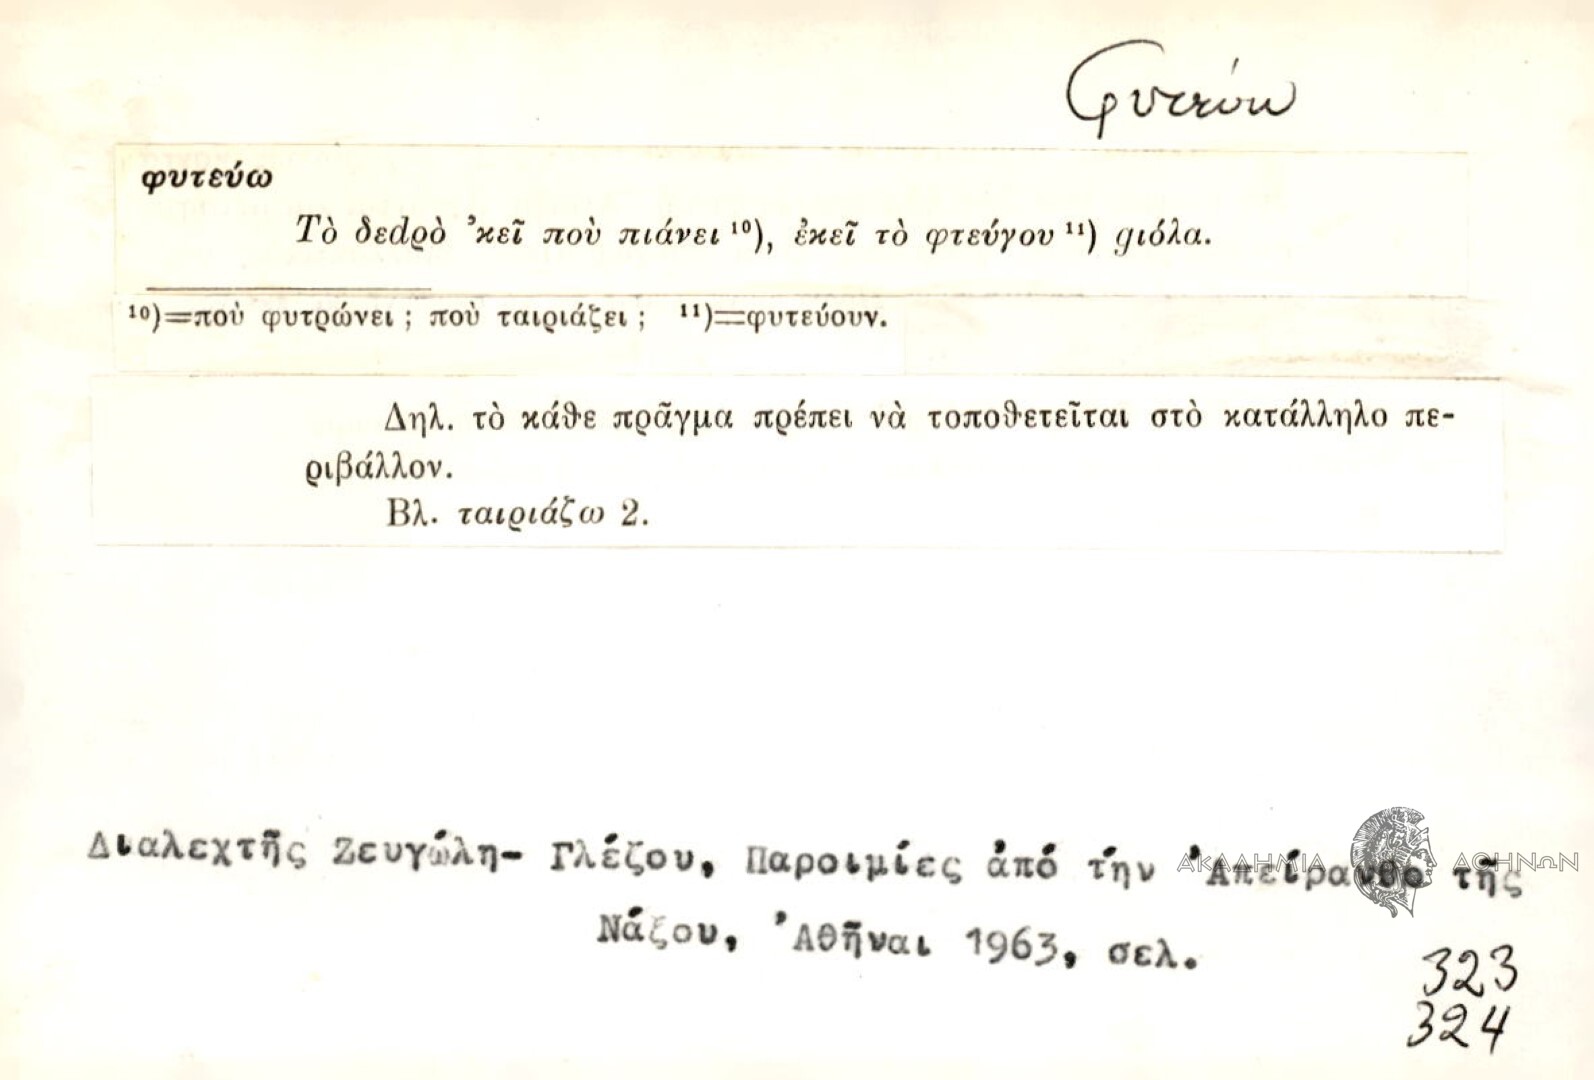 φυτεύω
φυτεύω
Τὸ δεdρὸ ᾿κεῖ ποὺ πιάνει ¹⁰), ἐκεῖ τὸ φτεύγου ¹¹) gιόλα.
¹⁰)=ποὺ φυτρώνει ; ποὺ ταιριάζει ; ¹¹)=φυτεύουν.
Δηλ. τὸ κάθε πρᾶγμα πρέπει νὰ τοποθετεῖται στὸ κατάλληλο πε-
ριβάλλον.
Βλ. ταιριάζω 2.
Διαλεχτῆς Ζευγώλη- Γλέζου, Παροιμίες ἀπό τήν ᾿Απείρανθο τῆς
ΑΚΑΔΗΜΙΑ ΑΘΗΝΩΝ
Νάξου, ᾿Αθῆναι 1963, σελ.
323
324